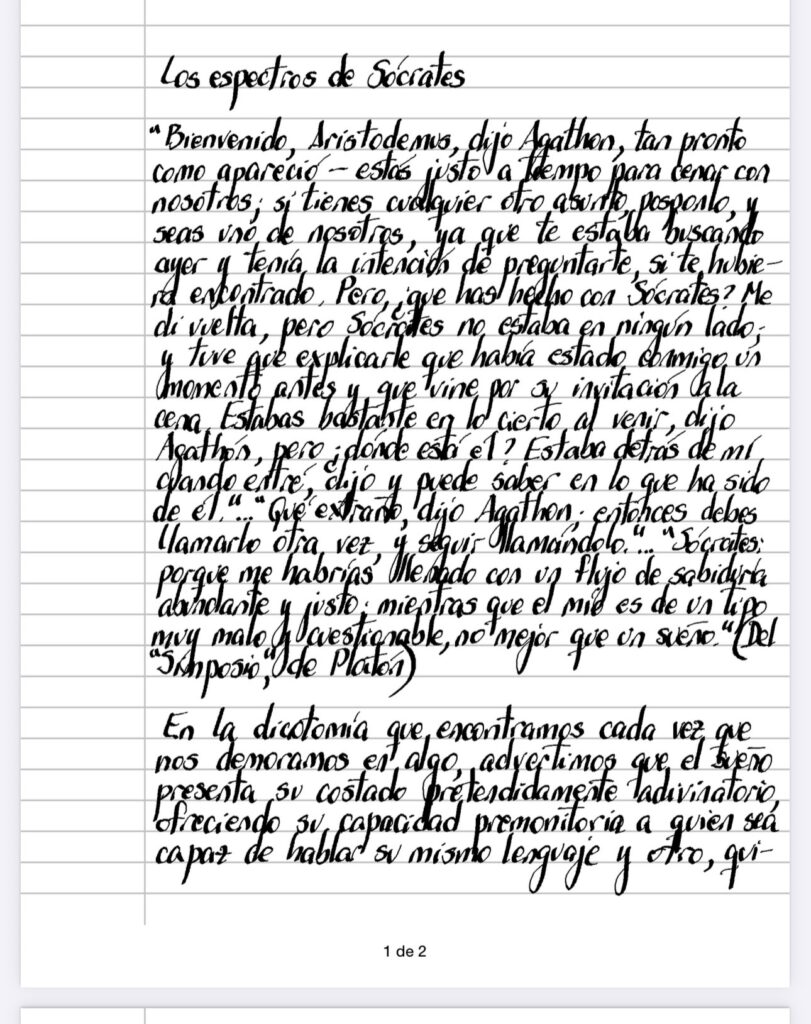 Los espectros de Sócrates
"Bienvenido, Aristodemus, dijo Agathon, tan pronto
como apareció – estás justo a tiempo para cenar con
nosotros; si tienes cualquier otro asunto, posponlo, y
seas uno de nosotros, ya que te estaba buscando
ayer y tenía la intención de preguntarte, si te hubie-
ra encontrado. Pero, ¿que has hecho con Sócrates? Me
di vuelta, pero Sócrates no estaba en ningún lado;
y tuve que explicarle que había estado conmigo un
momento antes y que vine por su invitación a la
cena. Estabas bastante en lo cierto al venir, dijo
Agathón, pero ¿dónde está él? Estaba detrás de mí
cuando entré, dijo y puede saber en lo que ha sido
de él."..."Qué extraño, dijo Agathon; entonces debes
llamarlo otra vez, y seguir llamándolo."..."Sócrates:
porque me habrías llenado con un flujo de sabiduría
abundante y justo; mientras que el mío es de un tipo
muy malo y cuestionable, no mejor que un sueño." (Del
"Simposio", de Platón)
En la dicotomía que encontramos cada vez que
nos demoramos en algo, advertimos que el sueño
presenta su costado pretendidamente adivinatorio,
ofreciendo su capacidad premonitoria a quien sea
capaz de hablar su mismo lenguaje y otro, qui-
1 de 2